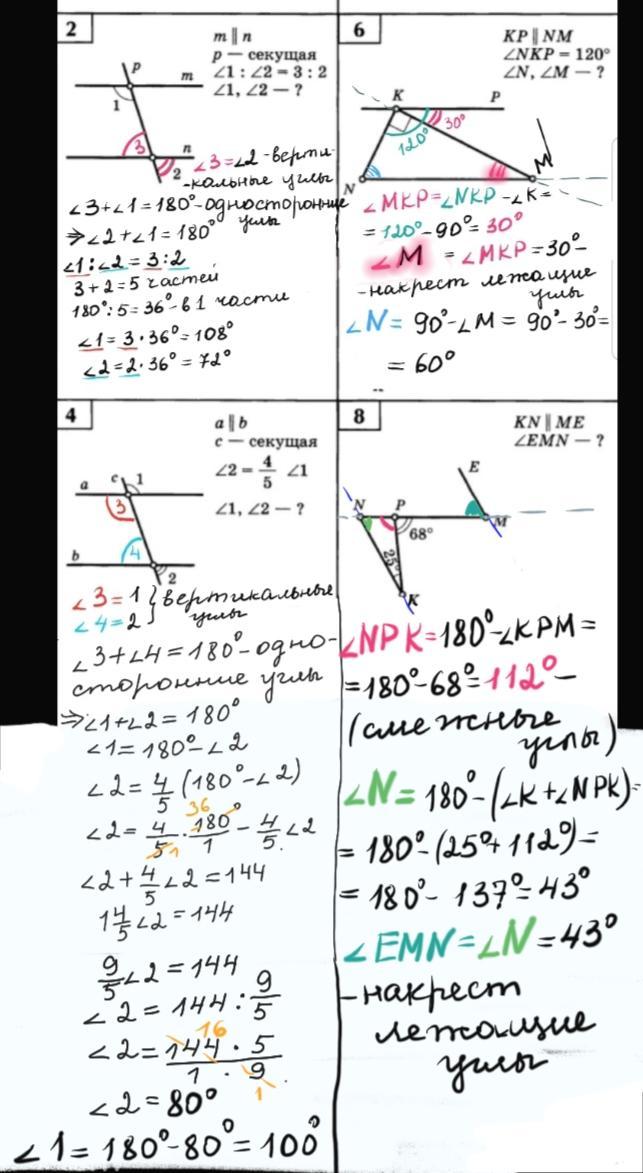 2
m ∥ n
p — секущая
∠1 : ∠2 = 3 : 2
∠1, ∠2 — ?
p
m
1
3
n
2
∠3=∠2 -верти-
-кальные углы
∠3+∠1=180°-односторонние
углы
⇒∠2+∠1=180°
∠1:∠2=3:2
3+2=5 частей
180°:5=36°-в 1 части
∠1=3·36°=108°
∠2=2·36°=72°
6
KP ∥ NM
∠NKP = 120°
∠N, ∠M — ?
K
P
120°
30°
N
M
∠MKP=∠NKP-∠K=
=120°-90°=30°
∠M = ∠MKP=30°-
-накрест лежащие
углы
∠N= 90°-∠M= 90°-30°=
= 60°
4
a ∥ b
c — секущая
∠2 = 4/5 ∠1
∠1, ∠2 — ?
c
1
a
3
b
4
2
∠3=1 } вертикальные
∠4=2 углы
∠3+∠4=180°-одно-
сторонние углы
⇒∠1+∠2=180°
∠1=180°-∠2
∠2=4/5(180°-∠2)
36
∠2=4/5·180°/1-4/5∠2
1
∠2+4/5∠2=144
1 4/5∠2=144
9/5∠2=144
∠2=144:9/5
16
∠2=144·5/1·9
1
∠2=80°
∠1=180°-80°=100°
8
KN ∥ ME
∠EMN — ?
E
N
P
M
68°
25°
K
∠NPK=180°-∠KPM=
=180°-68°=112°-
(смежные
углы)
∠N= 180°-(∠K+∠NPK)=
= 180°-(25°+112°)=
= 180°- 137°=43°
∠EMN=∠N=43°
-накрест
лежащие
углы